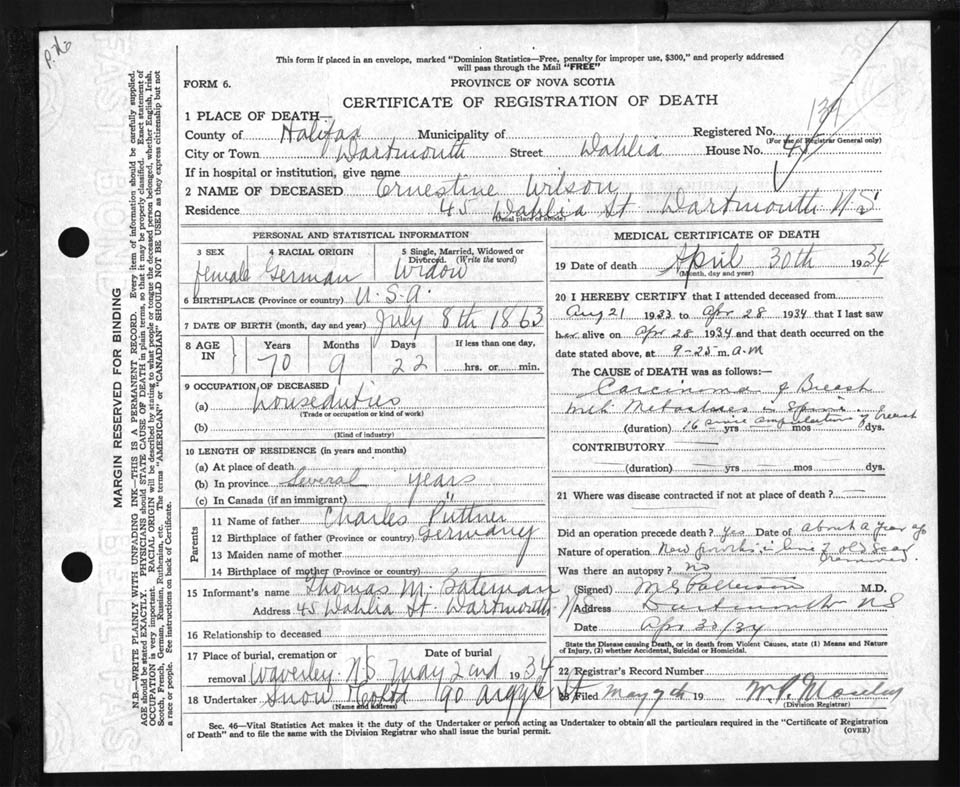 P.26
This form if placed in an envelope, marked "Dominion Statistics—Free, penalty for improper use, $300," and properly addressed
will pass through the Mail "FREE"
FORM 6.
PROVINCE OF NOVA SCOTIA
CERTIFICATE OF REGISTRATION OF DEATH
1 PLACE OF DEATH—
County of Halifax Municipality of
Registered No.
(For use of Registrar General only)
City or Town Dartmouth Street Dahlia House No. 45
If in hospital or institution, give name
2 NAME OF DECEASED Ernestine Wilson
Residence 45 Dahlia St Dartmouth N.S
(Usual place of abode)
PERSONAL AND STATISTICAL INFORMATION
3 SEX 4 RACIAL ORIGIN 5 Single, Married, Widowed or
Divorced. (Write the word)
female German Widow
6 BIRTHPLACE (Province or country) U.S.A.
7 DATE OF BIRTH (month, day and year) July 8th 1863
8 AGE IN Years Months Days If less than one day,
70 9 22 hrs. or min.
9 OCCUPATION OF DECEASED
(a) houseduties
(Trade or occupation or kind of work)
(b)
(Kind of industry)
10 LENGTH OF RESIDENCE (in years and months)
(a) At place of death
(b) In province Several years
(c) In Canada (if an immigrant)
Parents
11 Name of father Charles Püttner
12 Birthplace of father (Province or country) Germany
13 Maiden name of mother
14 Birthplace of mother (Province or country)
15 Informant's name Thomas M. Bateman
Address 45 Dahlia St. Dartmouth N
16 Relationship to deceased
17 Place of burial, cremation or Date of burial
removal Waverley N.S May 2nd 1934
18 Undertaker Snow & Co Ltd 90 Argyle St
(Name and address)
MEDICAL CERTIFICATE OF DEATH
19 Date of death April 30th 1934
(Month, day and year)
20 I HEREBY CERTIFY that I attended deceased from
Aug 21 1933 to Apr 28 1934 that I last saw
her alive on Apr 28 1934 and that death occurred on
date stated above, at 9-25 m. A.M
The CAUSE of DEATH was as follows:—
Carcinoma of Breast
with Metastases in Spine.
(duration) 16 since amputation of breast yrs mos dys.
CONTRIBUTORY
(duration) yrs. mos dys.
21 Where was disease contracted if not at place of death?
Did an operation precede death? Yes Date of about a year ago
Nature of operation New growths in line of old scar removed.
Was there an autopsy? no
(Signed) M.D.
Address Dartmouth NS
Date Apr 30/34
State the Disease causing Death, or in death from Violent Causes, state (1) Means and Nature
of Injury, (2) whether Accidental, Suicidal or Homicidal.
22 Registrar's Record Number
23 Filed May 7th 19 W.P. Moseley
(Division Registrar)
Sec. 46—Vital Statistics Act makes it the duty of the Undertaker or person acting as Undertaker to obtain all the particulars required in the "Certificate of Registration
of Death" and to file the same with the Division Registrar who shall issue the burial permit.
(OVER)
MARGIN RESERVED FOR BINDING
N.B.—WRITE PLAINLY WITH UNFADING INK—THIS IS A PERMANENT RECORD. Every item of information should be carefully supplied.
AGE should be stated EXACTLY. PHYSICIANS should STATE CAUSE OF DEATH in plain terms, so that it may be properly classified. Exact statement of
OCCUPATION is very important. RACIAL ORIGIN will be described by stating to what people or tongue the deceased person belonged, whether English, Irish,
Scotch, French, German, Russian, Ruthenian, etc. The terms "AMERICAN" or "CANADIAN" SHOULD NOT BE USED as they express citizenship but not
a race or people. See instructions on back of Certificate.